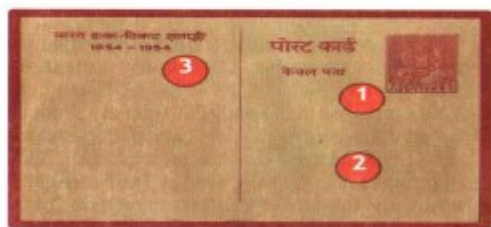 भारत डाक-टिकट शताब्दी
1854 - 1954
3
पोस्ट कार्ड
केवल पता
1
2